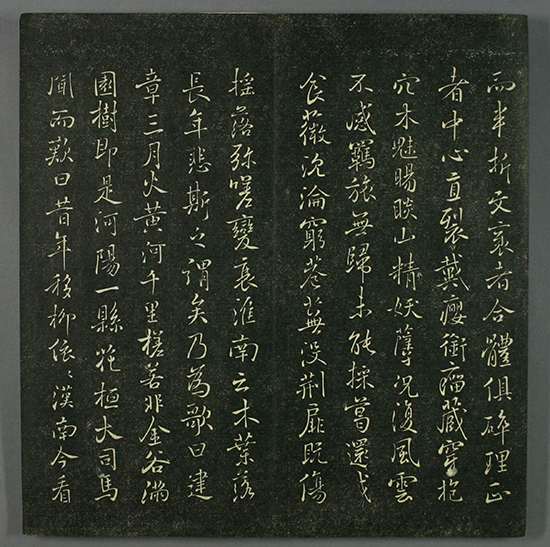 而半折文衺者合體俱碎理正
者中心直裂戴癭銜瘤藏穿抱
穴木魅暘睒山精妖孽況復風雲
不感羈旅無歸未能採葛還成
食薇沉淪窮巷蕪沒荊扉既傷
搖落弥嗟變衰淮南云木葉落
長年悲斯之謂矣乃為歌曰建
章三月火黃河千里槎若非金谷滿
園樹即是河陽一縣花桓大司馬
聞而歎曰昔年移柳依〻漢南今看